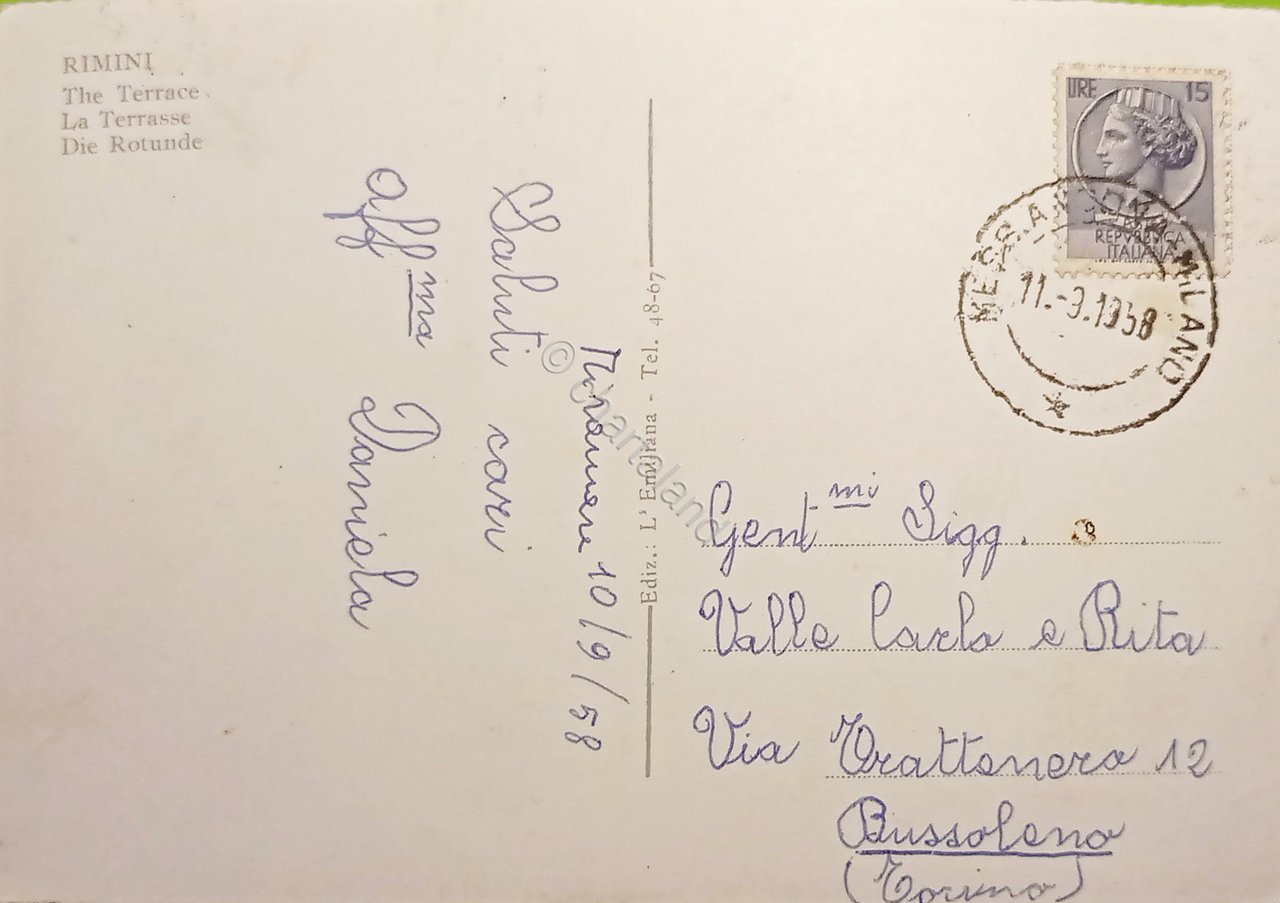 RIMINI
The Terrace
La Terrasse
Die Rotunde
Miramare 10/9/58
Saluti cari
aff.ma Daniela
Ediz.: L' Emiliana - Tel. 48-67
LIRE 15
REPVBBLICA
ITALIANA
MESS. ANCONA MILANO
11.-9.1958
Gent mi Sigg.
Valle Carlo e Rita
Via Trattenero 12
Bussoleno
(Torino)
© Chartaland